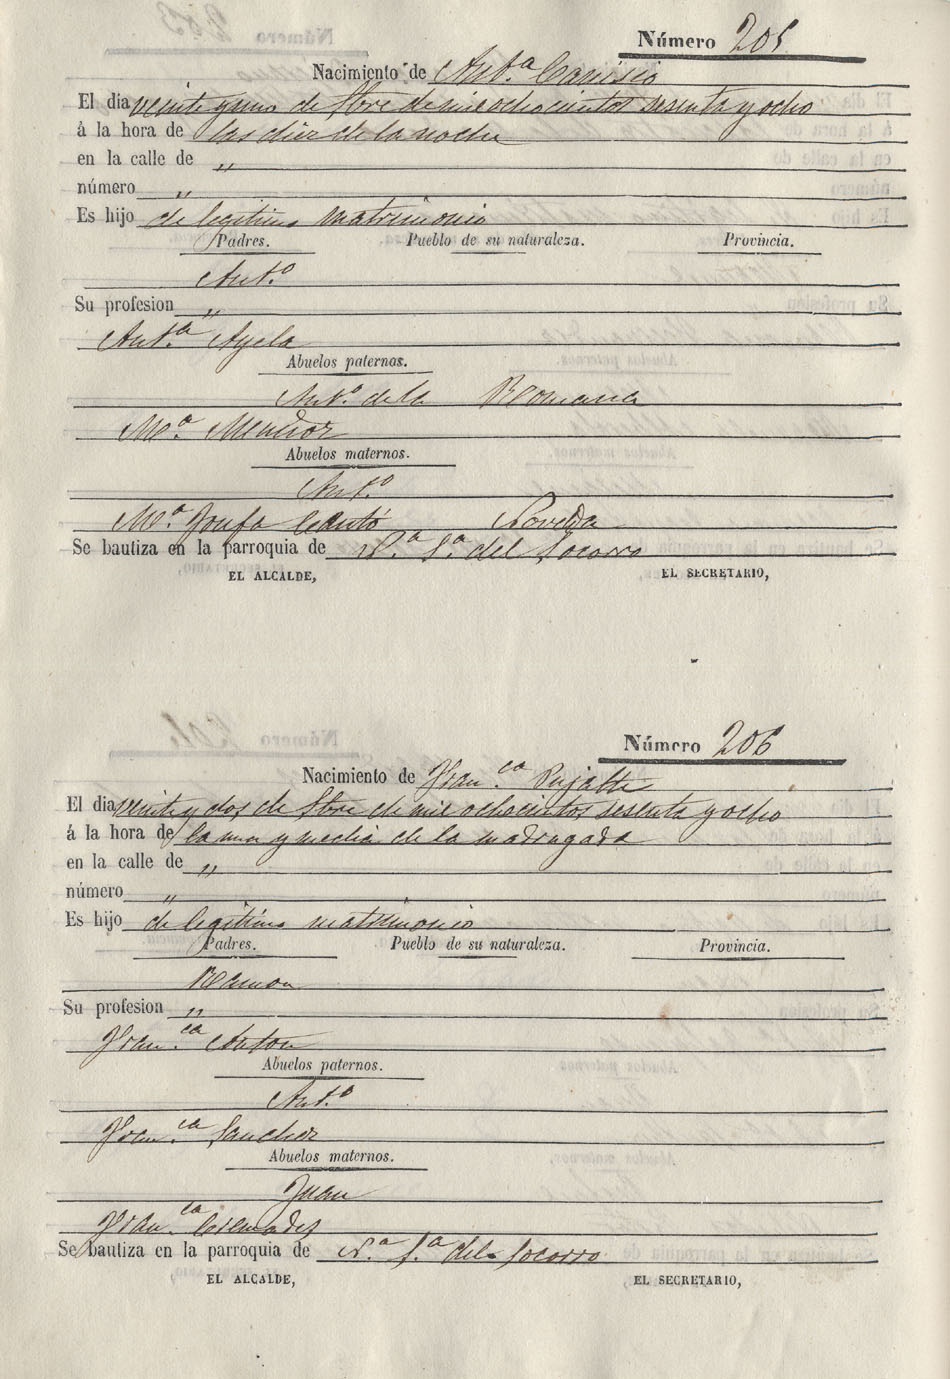 Número 205
Nacimiento de Ant.ª Canisio
El dia veinte y uno de Sbre de mil ochocientos sesenta y ocho
á la hora de las diez de la noche
en la calle de "
número "
Es hijo de legitimo matrimonio
Padres. Pueblo de su naturaleza. Provincia.
Ant.º
Su profesion "
Ant.ª Ayela
Abuelos paternos.
Ant.º de la Romana
M.ª
Abuelos maternos.
Ant.º
M.ª Josefa Cantó Novelda
Se bautiza en la parroquia de N.ª S.ª del Socorro
EL ALCALDE, EL SECRETARIO,
Número 206
Nacimiento de Fran.ca Pujalte
El dia veinte y dos de Sbre de mil ochocientos sesenta y ocho
á la hora de la una y media de la madrugada
en la calle de "
número "
Es hijo de legitimo matrimonio
Padres. Pueblo de su naturaleza. Provincia.
Ramon
Su profesion "
Fran.ca Anton
Abuelos paternos.
Ant.º
Fran.ca Sanchez
Abuelos maternos.
Juan
Fran.ca Cremades
Se bautiza en la parroquia de N.ª S.ª del Socorro
EL ALCALDE, EL SECRETARIO,